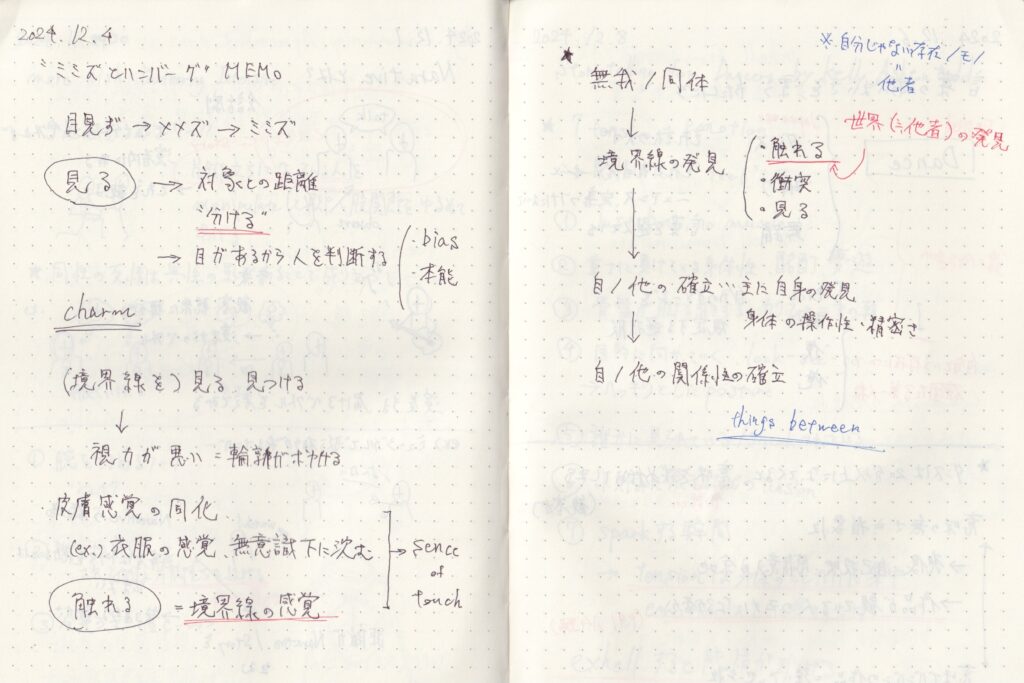 2024.12.4
ミミズとハンバーグ MEMO
目見ず → メメズ → ミミズ
見る → 対象との距離
"分ける"
→ 目があるから人を判断する
・bias
・本能
charm
(境界線を) 見る 見つける
↓
視力が悪い = 輪郭がボヤける
・皮膚感覚の同化
(ex.) 衣服の感覚、無意識下に沈む
触れる = 境界線の感覚
→ sence
of
touch
※自分じゃない存在/モノ
"
他者
★
無我/同体
↓
境界線の発見
・触れる
・衝突
・見る
世界(≒他者)の発見
↓
自/他の確立…主に自身の発見
身体の操作性・精密さ
↓
自/他の関係性の確立
things between